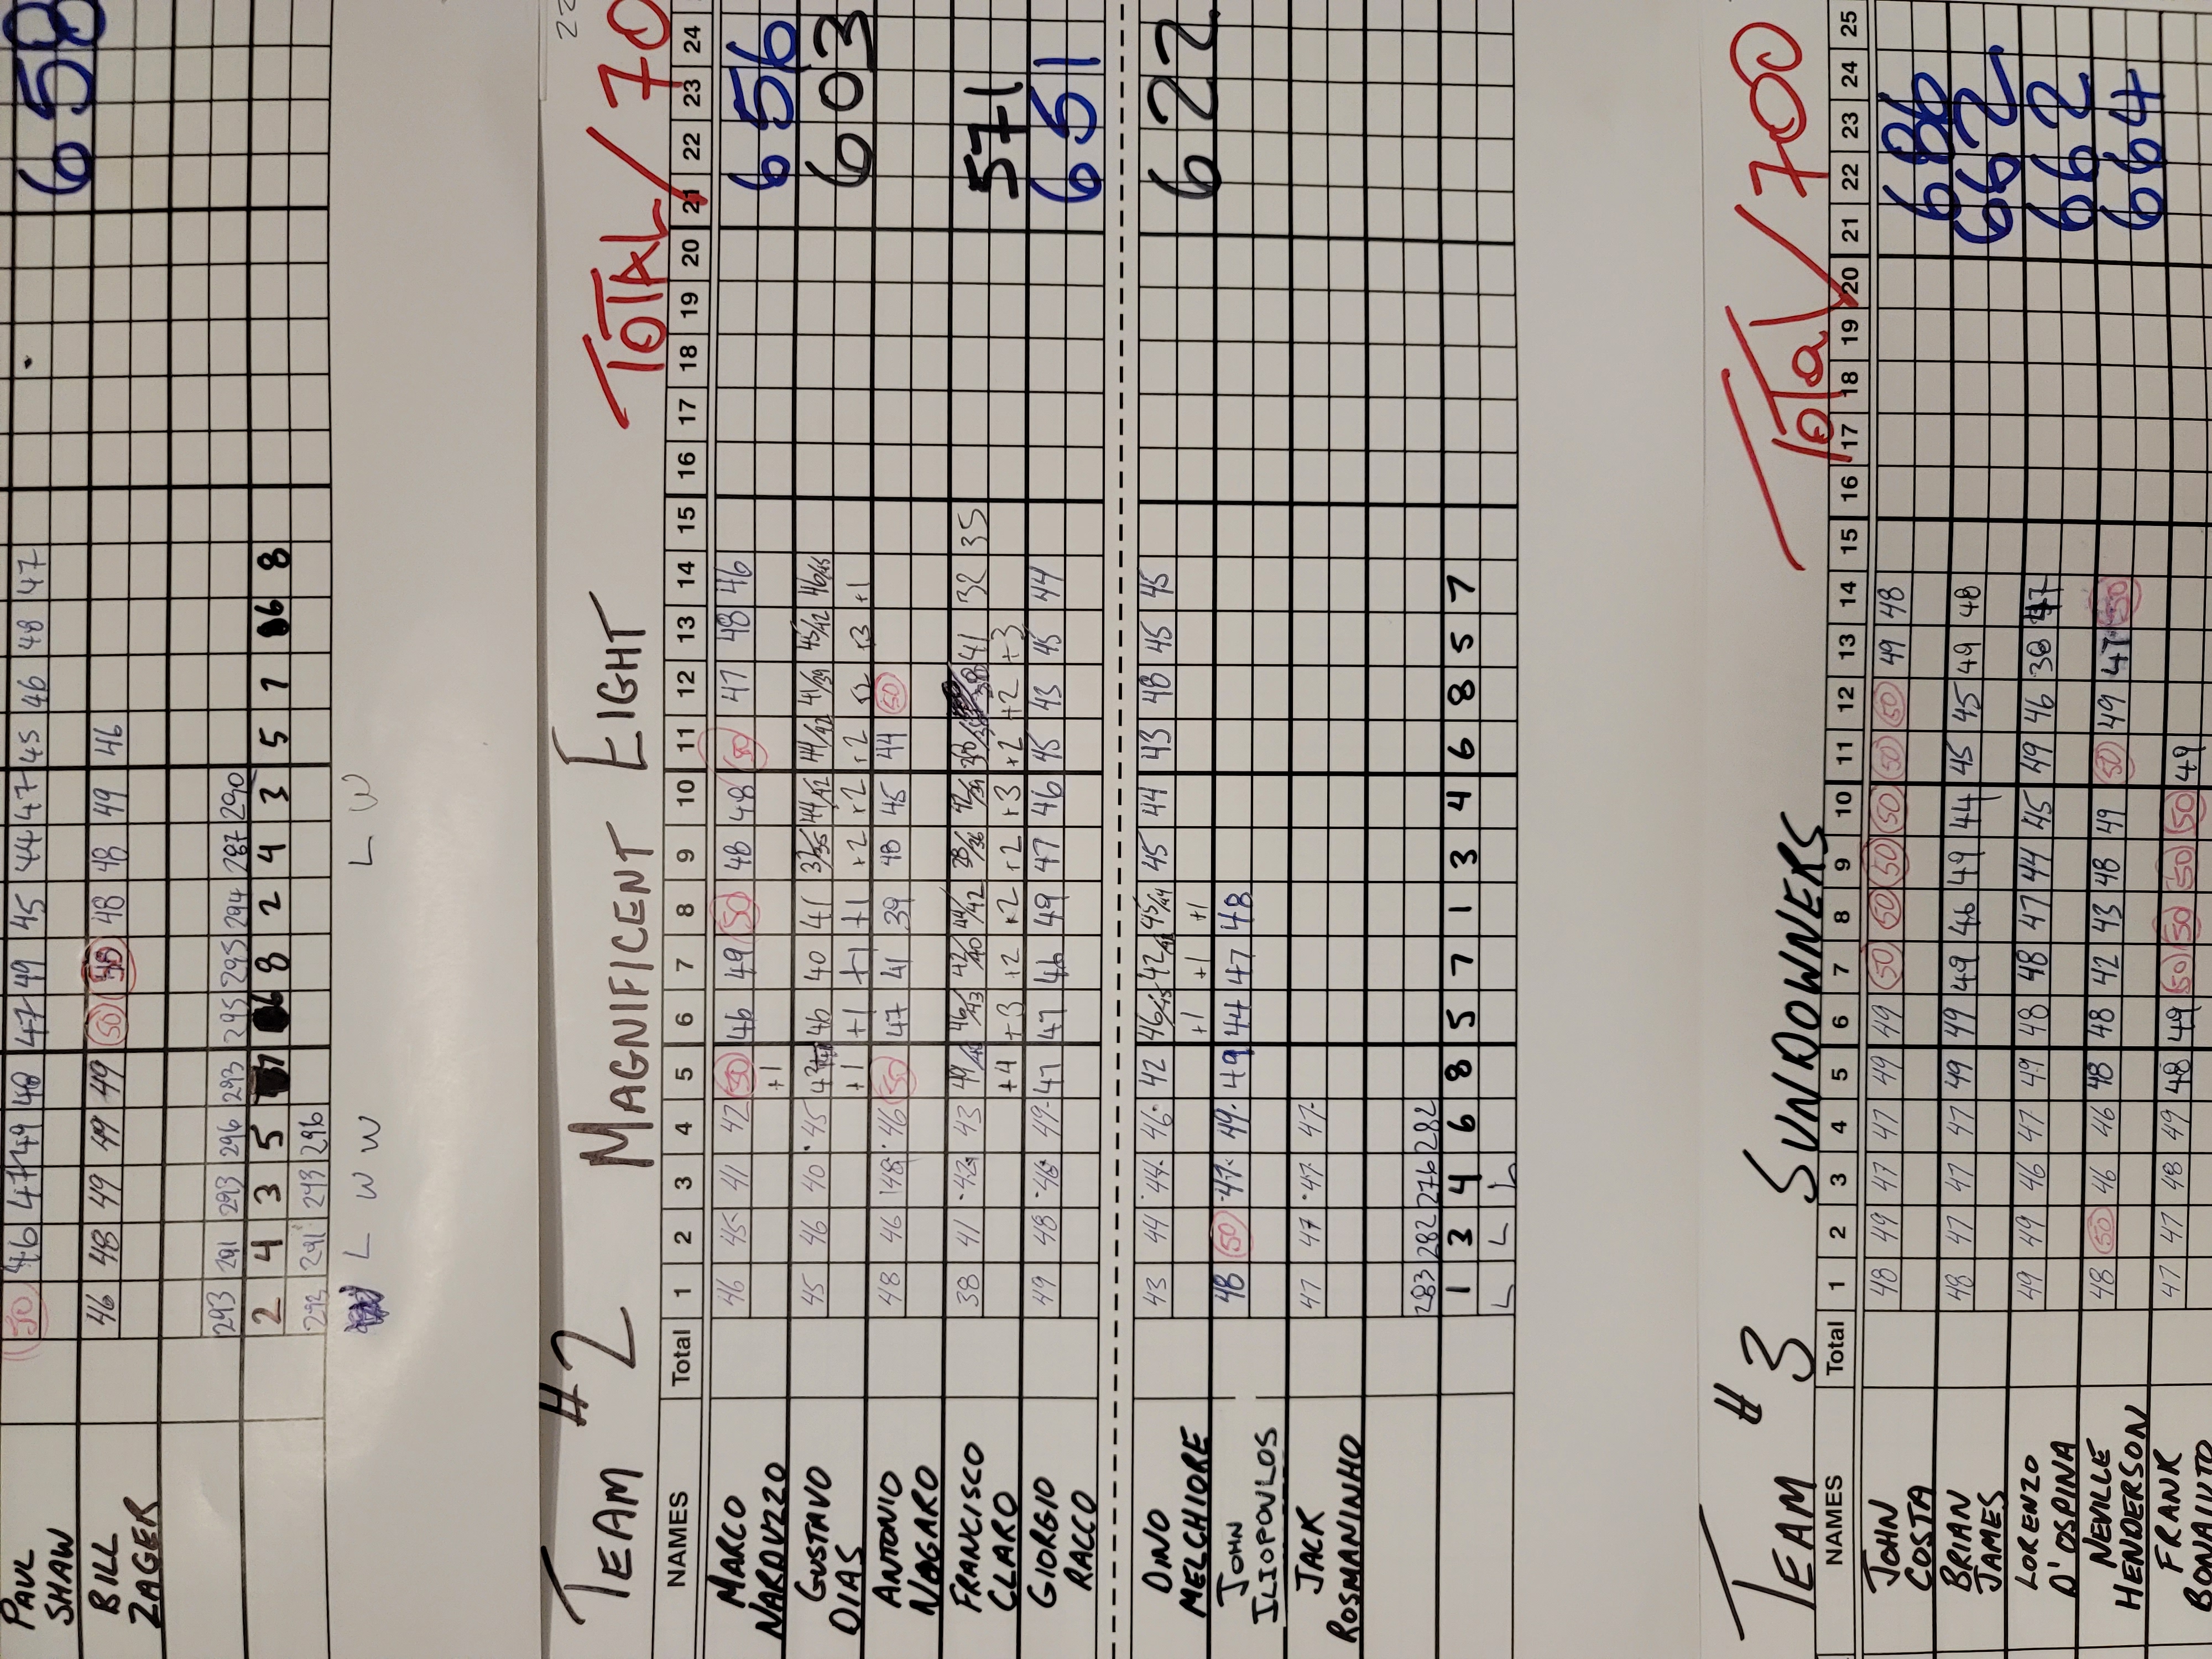 PAUL SHAW 50 46 47 49 48 47 49 45 44 47 45 46 48 47 658
BILL ZAGER 46 48 49 49 49 50 50 48 48 49 46
293 291 293 296 293 295 295 294 287 290
2 4 3 5 1 6 8 2 4 3 5 7 6 8
293 291 293 296
L W W L W
TEAM #2 MAGNIFICENT EIGHT TOTAL / 70
NAMES Total 1 2 3 4 5 6 7 8 9 10 11 12 13 14 15 16 17 18 19 20 21 22 23 24
MARCO NARDUZZO 46 45 41 42 50 46 49 50 48 48 50 47 48 46 656
+1
GUSTAVO DIAS 45 46 40 45 46 40 41 44/42 44/42 41/39 45/42 46/45 603
+1 +1 +1 +1 +2 +2 +2 +1
ANTONIO NAGARO 48 46 48 46 50 47 41 39 48 45 44 50
FRANCISCO CLARO 38 41 42 43 46/43 42/40 44/42 38/36 42/39 41 32 35 571
+4 +3 +2 +2 +2 +3 +2 +2 +3
GIORGIO RACCO 49 48 48 49 47 47 46 49 47 46 45 43 45 44 651
DINO MELCHIORE 43 44 44 46 42 46/45 45/44 45 44 43 48 45 45 622
+1 +1 +1
JOHN ILIOPOULOS 48 50 47 49 49 44 47 48
JACK ROSMANINHO 47 47 47 47
283 282 276 282
1 3 4 6 8 5 7 1 3 4 6 8 5 7
L L L
TEAM #3 SUNDOWNERS Total / 700
NAMES Total 1 2 3 4 5 6 7 8 9 10 11 12 13 14 15 16 17 18 19 20 21 22 23 24 25
JOHN COSTA 48 49 47 47 49 49 50 50 50 50 50 50 49 48 686
BRIAN JAMES 48 47 47 47 49 49 49 46 49 44 45 45 49 48 662
LORENZO D'OSPINA 49 49 46 47 49 48 48 47 44 45 49 46 38 47 662
NEVILLE HENDERSON 48 50 46 46 48 48 42 43 48 49 50 49 47 50 664
FRANK 47 47 48 49 48 49 50 50 50 50 49